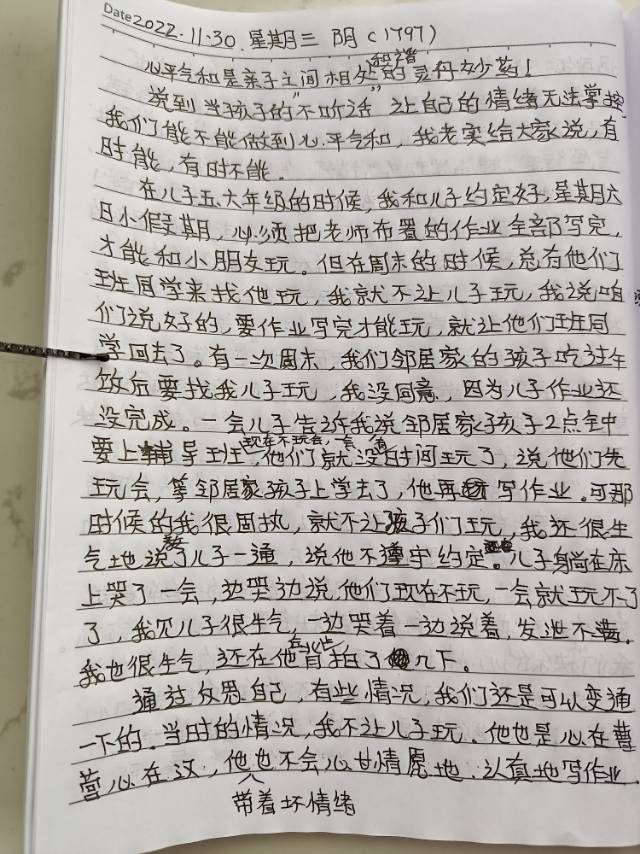 Date 2022.11.30 星期三 阴(1797)
心平气和是亲子之间相处和谐的灵丹妙药!
说到当孩子的"不听话"让自己的情绪无法掌控
我们能不能做到心平气和,我老实给大家说,有
时能,有时不能。
在儿子五六年级的时候,我和儿子约定好,星期六
日小假期,必须把老师布置的作业全部写完,
才能和小朋友玩。但在周末的时候,总有他们
班同学来找他玩,我就不让儿子玩,我说咱
们说好的,要作业写完才能玩,就让他们班同
学回去了。有一次周末,我们邻居家的孩子吃过午
饭后要找我儿子玩,我没同意,因为儿子作业还
没完成。一会儿子告诉我说邻居家孩子2点钟
要上辅导班,现在不玩会,一会他们就没时间玩了,说他们先
玩会,等邻居家孩子上学去了,他再写作业。可那
时候的我很固执,就不让孩子们玩,我还很生
气地说教了儿子一通,说他不遵守约定。儿子躺在床
上哭了一会,边哭边说,他们现在不玩,一会就玩不了
了,我见儿子很生气,一边哭着一边说着,发泄不满。
我也很生气,还在他背上拍了几下。
通过反思自己,有些情况,我们还是可以变通
一下的。当时的情况,我不让儿子玩。他也是心在曹
营心在汉,他也不会心甘情愿地.认真地写作业.
带着坏情绪